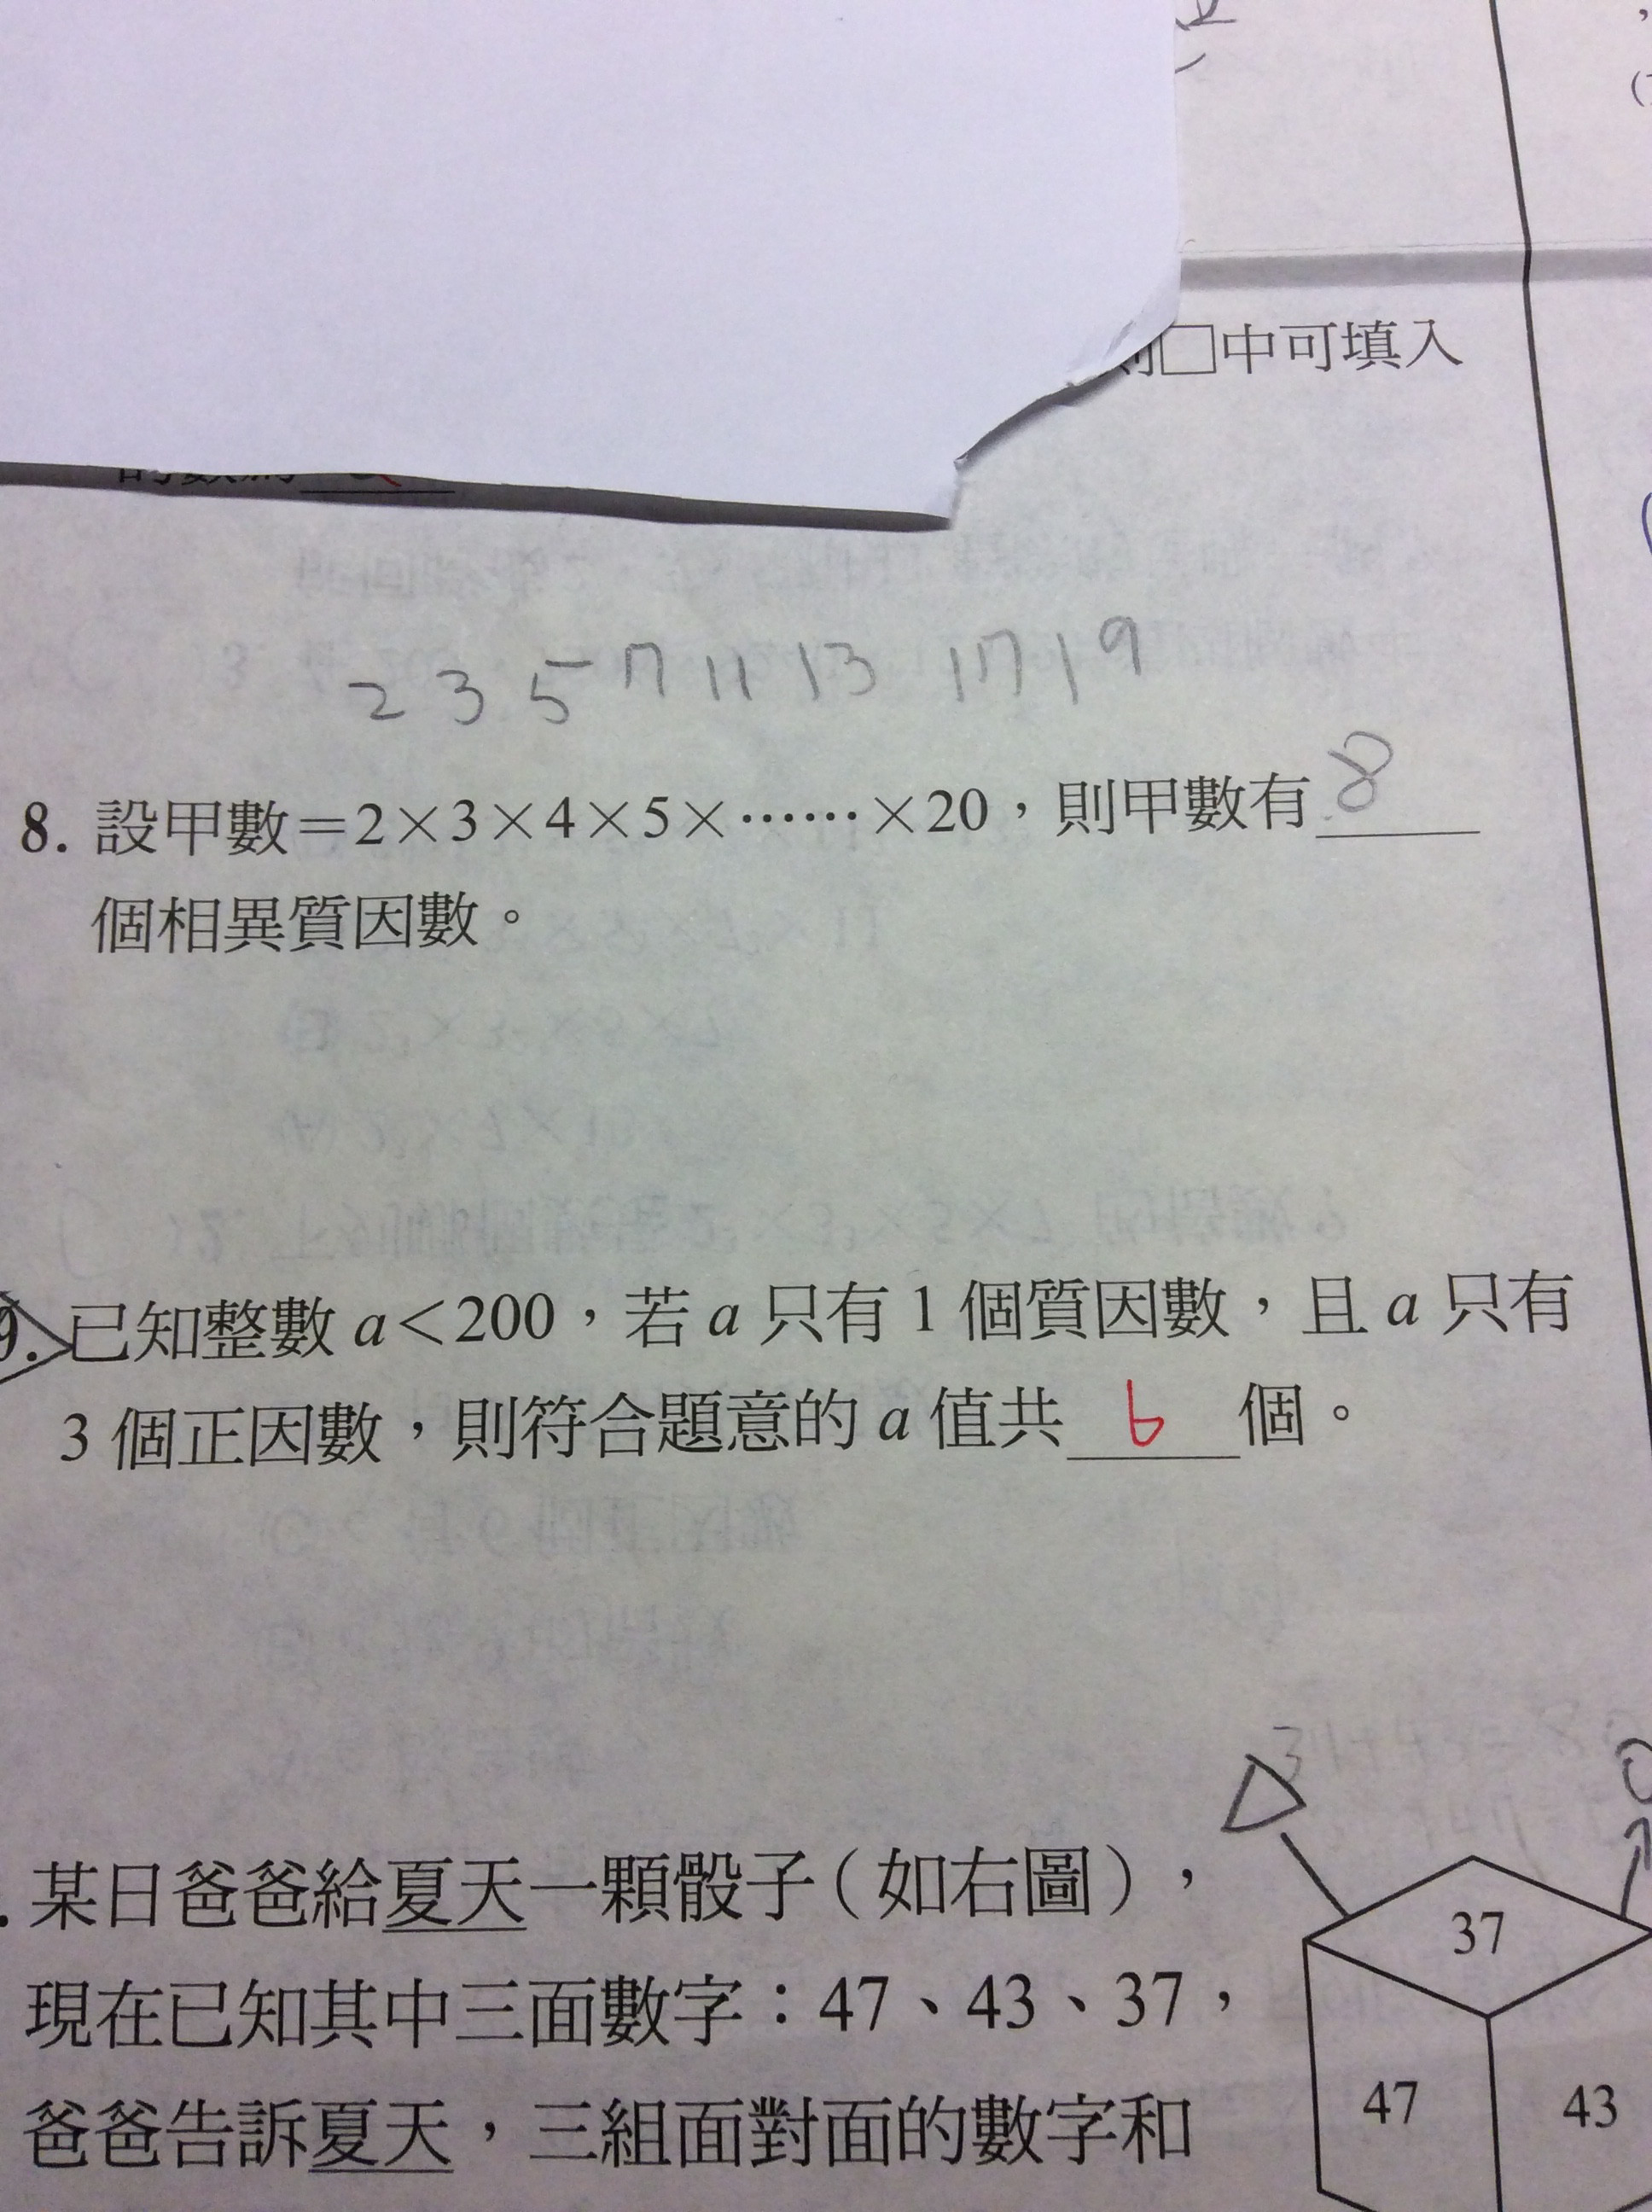 中可填入
2 3 5 7 11 13 17 19
8. 設甲數=2×3×4×5×……×20，則甲數有 8
個相異質因數。
9. 已知整數 a<200，若 a 只有 1 個質因數，且 a 只有
3 個正因數，則符合題意的 a 值共 6 個。
某日爸爸給夏天一顆骰子（如右圖），
現在已知其中三面數字：47、43、37，
爸爸告訴夏天，三組面對面的數字和
37
47 43